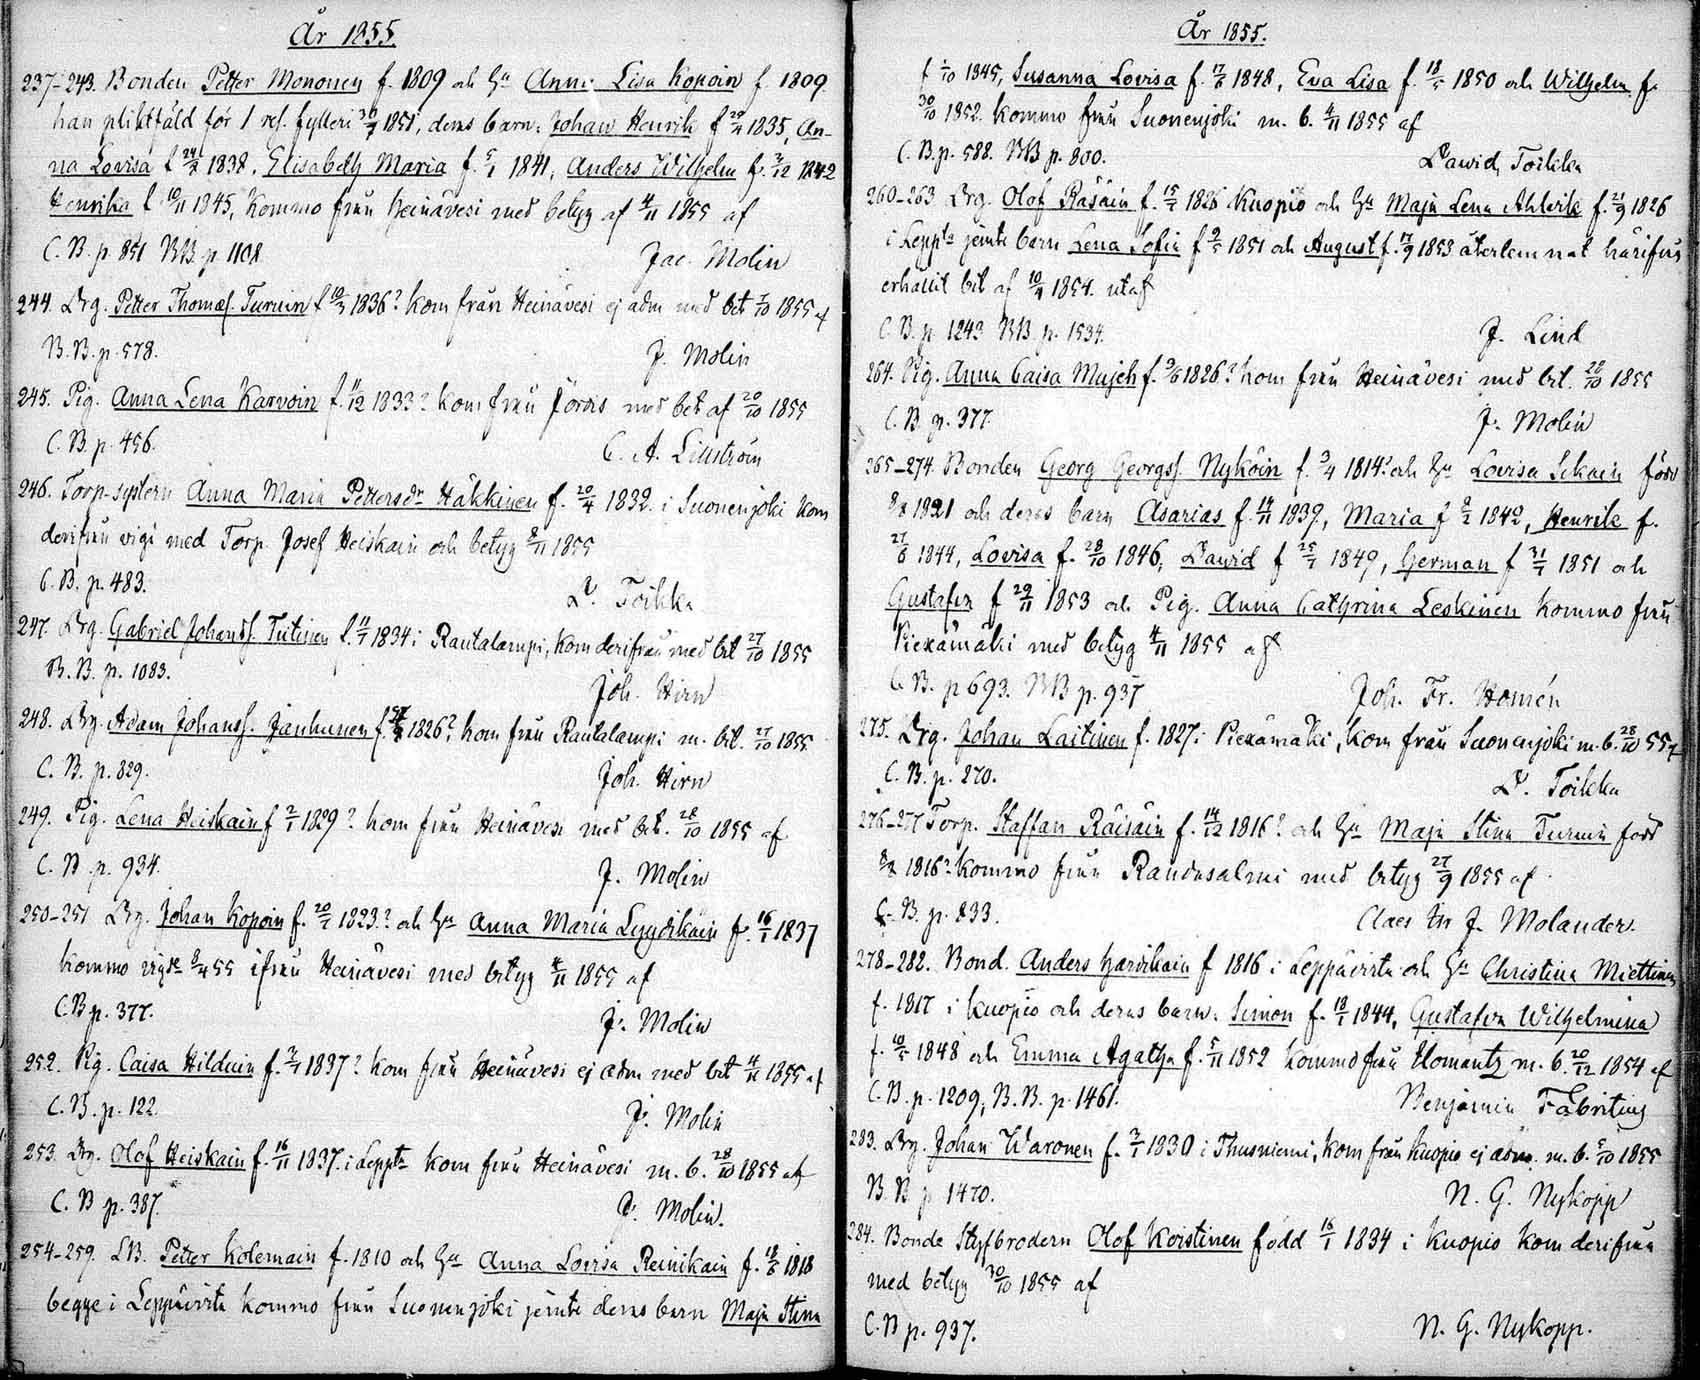 År 1855.
237-243. Bonden Petter Mononen f. 1809 och Hu Anna Lisa Kopoin f 1809
han pliktfäld för 1 res. fylleri 1851, deras barn: Johan Henrik f 1835, An-
na Lovisa f 24 1838, Elisabeth Maria f. 5/1 1841, Anders Wilhelm f. 2/12 1842
Henrika f 10/11 1845, kommo från Heinävesi med betyg af 4/11 1855 af
C. B. p. 851 BB. p 1108.
Jac. Molin
244. Drg. Petter Thomæs. Turuin f 10/3 1836? kom från Heinävesi ej adm med bet 1/10 1855 af
B. B. p. 578.
J. Molin
245. Pig. Anna Lena Karvoin f. 11/12 1833? kom från Jorois med bet af 20/10 1855
C. B. p. 456.
C. A. Lillström
246. Torp-systern Anna Maria Pettersdr Häkkinen f. 20/4 1832. i Suonenjoki kom
derifrån vigd med Torp. Josef Heiskain och betyg 8/11 1855
C. B. p. 483.
D. Toikka
247. Drg. Gabriel Johanss. Tutinen f. 11/7 1834 i Rautalampi, kom derifrån med bet 27/10 1855
B. B. p. 1083.
Joh. Hirn
248. Drg. Adam Johanss. Janhunen f. 1826? kom från Rautalampi m. bet. 27/10 1855
C. B. p. 829.
Joh. Hirn
249. Pig. Lena Heiskain f 2/1 1829? kom från Heinävesi med bet. 28/10 1855 af
C. B. p. 934.
J. Molin
250-251 Drg. Johan Kopoin f. 20/7 1823? och Hu Anna Maria Lyydikäin f. 16/1 1837
kommo 55 ifrån Heinävesi med betyg 4/11 1855 af
C B p. 377.
J. Molin
252. Pig. Caisa Hilduin f. 2/1 1837? kom från Heinävesi ej adm med bet 4/11 1855 af
C. B. p. 122.
J. Molin
253. Drg. Olof Heiskain f. 16/11 1837. i Leppta kom från Heinävesi m. b. 28/10 1855 af
C. B p. 387.
J. Molin.
254-259. LB. Petter Kolemain f. 1810 och Hu Anna Lovisa Reinikain f. 18/6 1818
begge i Leppävirta kommo från Suonenjoki jemte deras barn Maja Stina
År 1855.
f 1/10 1845, Susanna Lovisa f. 17/6 1848, Eva Lisa f. 18/5 1850 och Wilhelm f.
30/10 1852. kommo från Suonenjoki m. b. 4/11 1855 af
C. B. p. 588. BB p. 800.
Dawid Toikka
260-263 Drg. Olof Räsäin f. 15/2 1826 Kuopio och Hu Maja Lena Ahlerik f. 21/9 1826
i Leppta jemte barn Lena Sofia f 1851 och August f. 17/9 1853 återlemnat härifrån
erhållit bet af 10/4 1854. utaf
C. B. p. 1243 BB. p. 1534.
J. Lind
264. Pig. Anna Caisa Mujeh f. 3/6 1826? kom från Heinävesi med bet. 28/10 1855
C. B. p. 377.
J. Molin
265-274. Bonden Georg Georgss. Nykäin f. 3/4 1814? och Hu Lovisa Sikain född
1821 och deras barn Asarias f. 14/11 1839, Maria f 2/2 1842, Henrik f.
27/6 1844, Lovisa f. 28/10 1846, Dawid f 25/7 1849, German f 21/7 1851 och
Gustafva f 29/11 1853 och Pig. Anna Cathrina Leskinen kommo från
Piexämäki med betyg 4/11 1855 af
C. B. p 693. BB p. 937
Joh. Fr. Homén
275. Drg. Johan Laitinen f. 1827 i Piexämäki, kom från Suonenjoki m. b. 28/10 55
C. B. p. 270.
D. Toikka
276-277 Torp. Staffan Räisäin f. 14/12 1816? och Hu Maja Stina Turuin född
1816? kommo från Randasalmi med betyg 27/9 1855 af
C. B. p. 833.
Claes M J. Molander.
278-282. Bond. Anders Harvikain f 1816 i Leppävirta och Hu Christina Miettinen
f. 1817 i Kuopio och deras barn: Simon f. 18/1 1844, Gustafva Wilhelmina
f. 10/5 1848 och Emma Agatha f. 5/11 1852 kommo från Ilomantz m. b. 20/12 1854 af
C. B. p. 1209, B. B. p. 1461.
Benjamin Fabritius
283. Drg. Johan Waronen f. 2/1 1830 i Thusniemi, kom från Kuopio ej adm. m. b. 5/10 1855
B. B p 1470.
N. G. Nykopp
284. Bonde Styfbrodern Olof Koistinen född 16/1 1834 i Kuopio kom derifrån
med betyg 30/10 1855 af
C. B p. 937.
N. G. Nykopp.